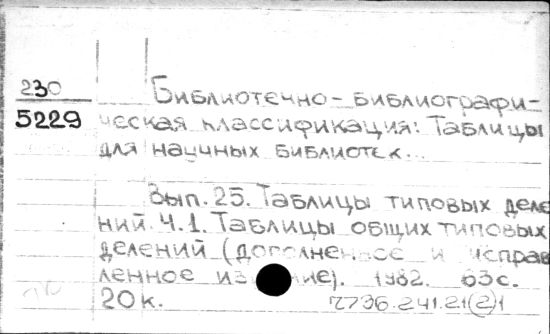 230
5229
Библиотечно-библиографи-
ческая классификация: Таблицы
для научных библиотек...
Вып. 25. Таблицы типовых деле
ний. Ч.1. Таблицы общих типовых
делений (дополненное и исправ
ленное). 1982. 63с.
20к.